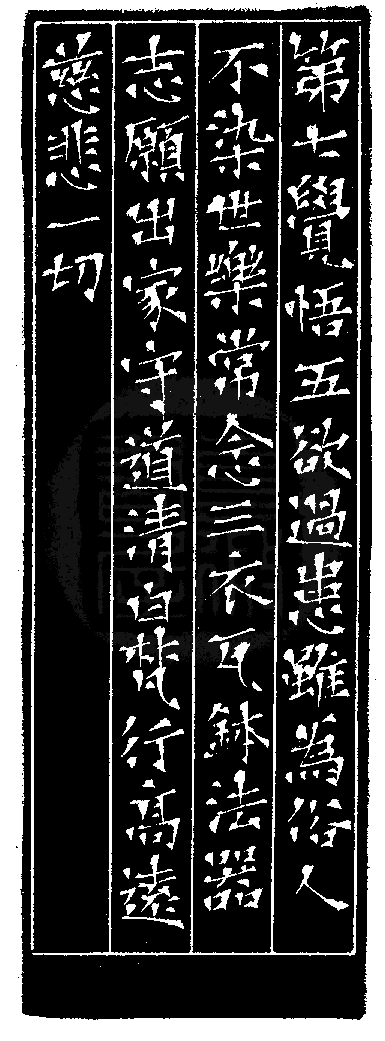 第七覺悟五欲過患雖為俗人
不染世樂常念三衣瓦鉢法器
志願出家守道清白梵行高遠
慈悲一切